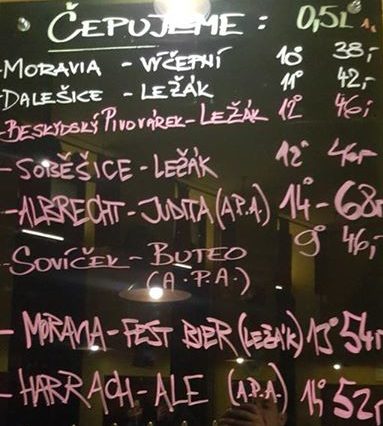 ČEPUJEME: 0,5L
- MORAVIA - VÝČEPNÍ 10° 38,-
DALEŠICE - LEŽÁK 11° 42,-
- BESKYDSKÝ PIVOVÁREK - LEŽÁK 12° 46,-
- SOBĚŠICE - LEŽÁK 12°
- ALBRECHT - JUDITA (A.P.A.) 14° - 68,-
- SOVÍČEK - BUTEO 9° 46,-
(A.P.A.)
- MORAVIA - FEST BIER (LEŽÁK) 13° 54,-
- HARRACH - ALE (A.P.A.) 52,-